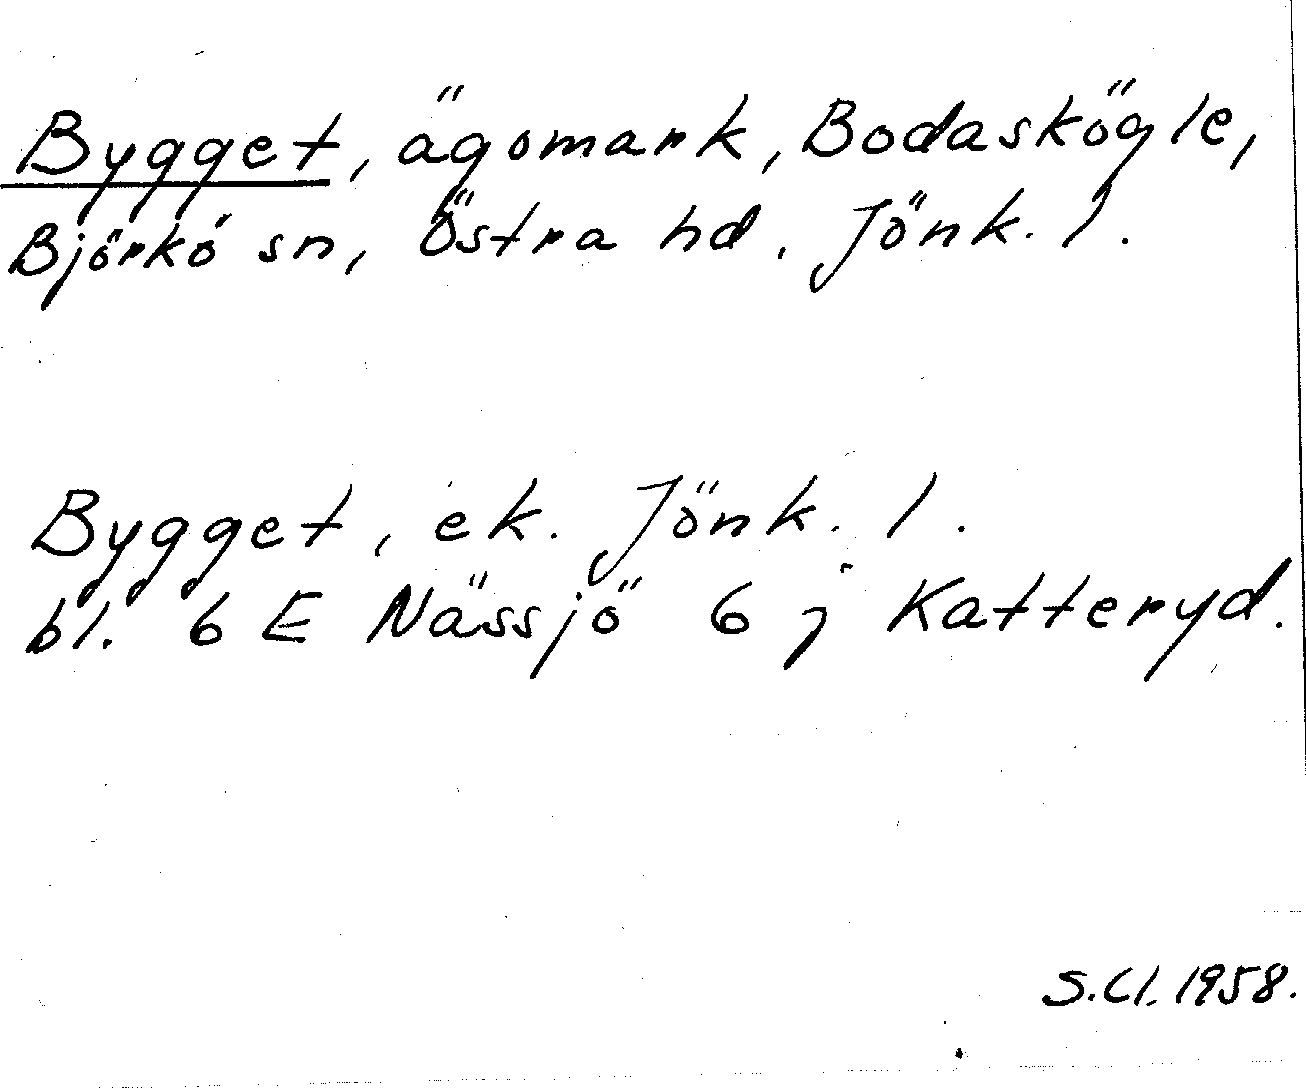 Bygget, ägomark, Bodaskögle,
Björkö sn, Östra hd. Jönk. l.
Bygget, ek. Jönk. l.
bl. 6 E Nässjö 6 j Katteryd.
S.Cl. 1958.